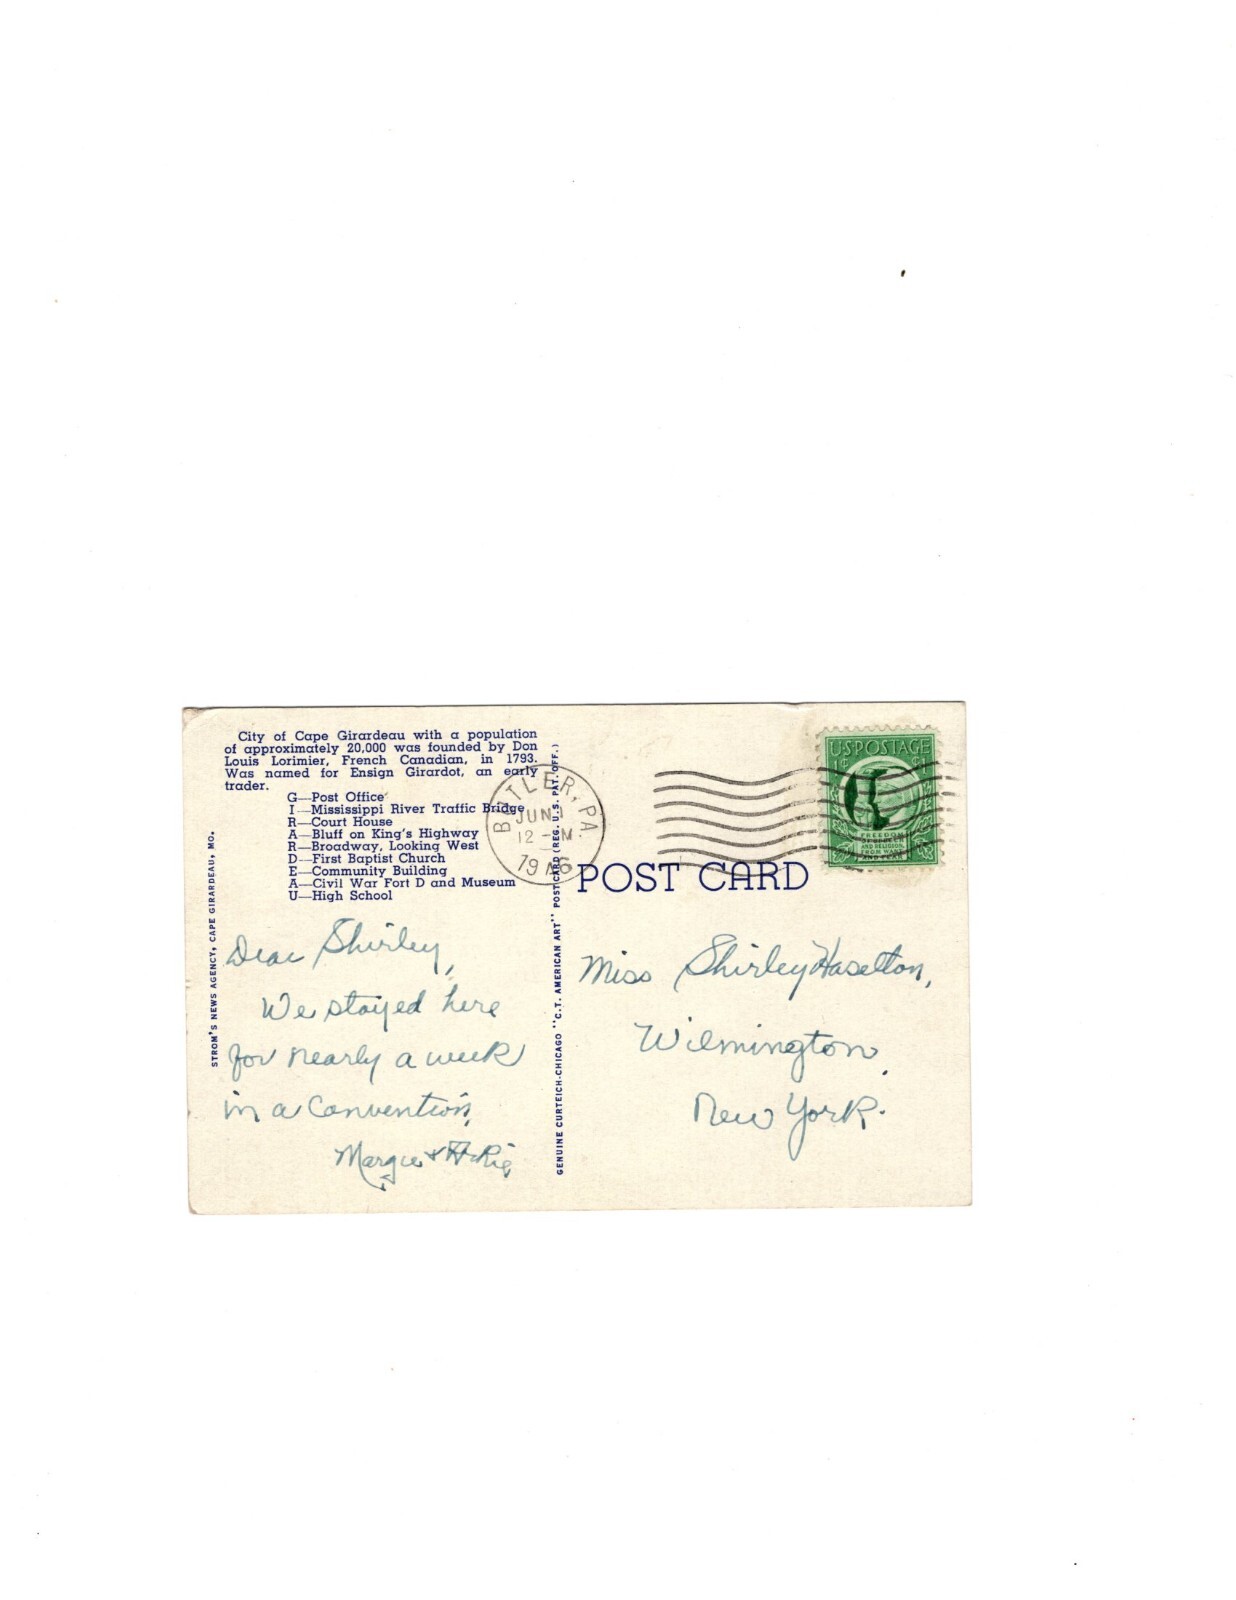 City of Cape Girardeau with a population
of approximately 20,000 was founded by Don
Louis Lorimier, French Canadian, in 1793.
Was named for Ensign Girardot, an early
trader.
G—Post Office
I—Mississippi River Traffic Bridge
R—Court House
A—Bluff on King's Highway
R—Broadway, Looking West
D—First Baptist Church
E—Community Building
A—Civil War Fort D and Museum
U—High School
STROM'S NEWS AGENCY, CAPE GIRARDEAU, MO.
Dear Shirley,
We stayed here
for nearly a week
in a convention,
Margie &
GENUINE CURTEICH-CHICAGO "C.T. AMERICAN ART" POST CARD (REG. U.S. PAT. OFF.)
BUTLER, PA.
JUN
12 M
1946
U.S. POSTAGE
1¢ 1¢
FREEDOM
OF SPEECH
AND RELIGION,
FROM WANT
AND FEAR
POST CARD
Miss Shirley Haselton,
Wilmington,
New York.